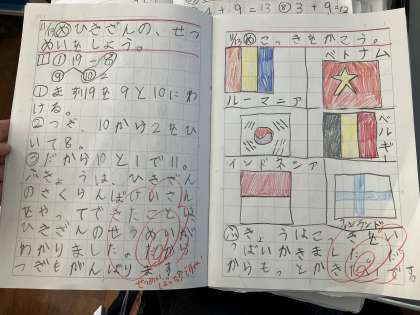 + 9 = 13 ⊗ 3 + 9 = 12
11/13 め ひきざんの、せつ
めいをしよう。
1 ① 19 - 8
⑨ ⑩
①まず19を9と10にわ
ける。
②つぎ、10から2をひ
いて8。
③だから10と1で11。
きょうは、ひきざん
のさくらんぼけいさん
をやってできたことは
ひきざんのせつめいが
わかりました。だから
つぎもがんばります。
11/13 め こっきをかこう。
ルーマニア
ベトナム
ベルギー
インドネシア
フィンランド
きょうはこっきをい
っぱいかきました。
だからもっとかきたいです。